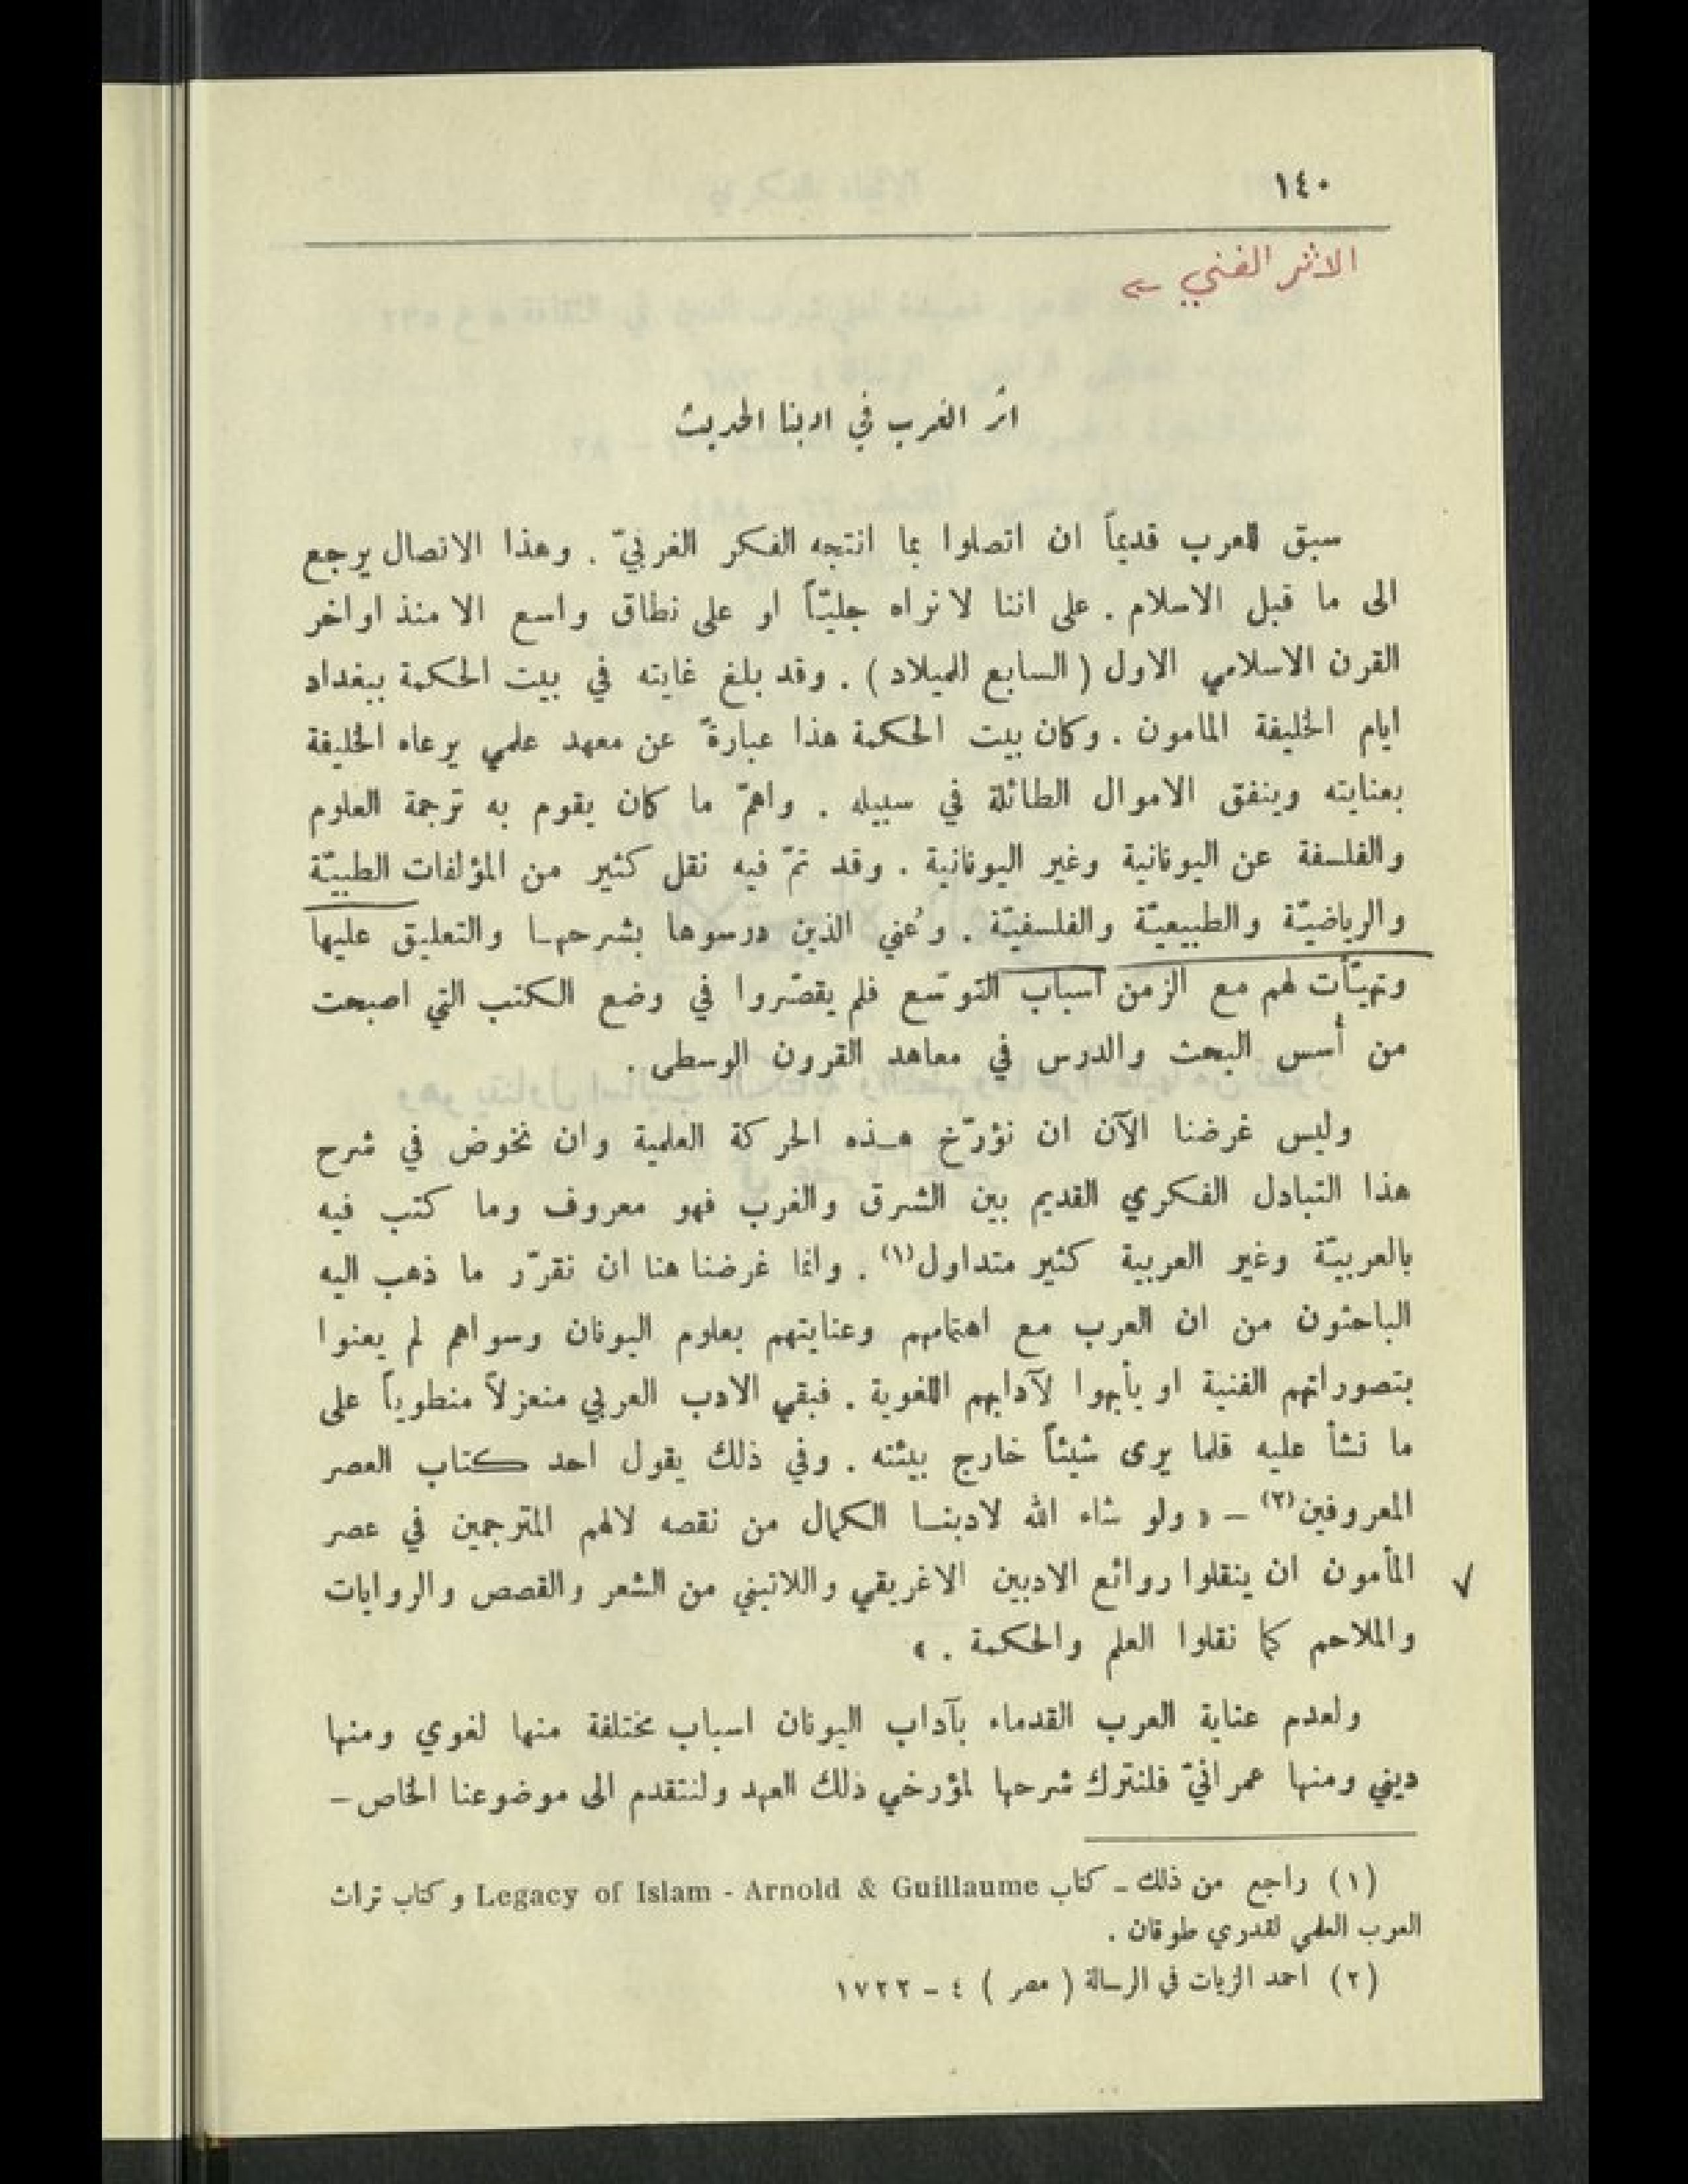 ١٤٠
الاثر الفني
اثر الغرب في ادبنا الحديث
سبق للعرب قديماً ان اتصلوا بما انتجه الفكر الغربيّ . وهذا الاتصال يرجع
الى ما قبل الاسلام . على اننا لا نراه جليّاً او على نطاق واسع الا منذ اواخر
القرن الاسلامي الاول ( السابع للميلاد ) . وقد بلغ غايته في بيت الحكمة ببغداد
ايام الخليفة المامون . وكان بيت الحكمة هذا عبارةً عن معهد علمي يرعاه الخليفة
بعنايته وينفق الاموال الطائلة في سبيله . واهمّ ما كان يقوم به ترجمة العلوم
والفلسفة عن اليونانية وغير اليونانية . وقد تمّ فيه نقل كثير من المؤلفات الطبيّة
والرياضيّة والطبيعيّة والفلسفيّة . وعُني الذين درسوها بشرحها والتعليق عليها
وتهيّأت لهم مع الزمن اسباب التوسّع فلم يقصّروا في وضع الكتب التي اصبحت
من أسس البحث والدرس في معاهد القرون الوسطى .
وليس غرضنا الآن ان نؤرّخ هذه الحركة العلمية وان نخوض في شرح
هذا التبادل الفكري القديم بين الشرق والغرب فهو معروف وما كتب فيه
بالعربيّة وغير العربية كثير متداول(١) . وانما غرضنا هنا ان نقرّر ما ذهب اليه
الباحثون من ان العرب مع اهتمامهم وعنايتهم بعلوم اليونان وسواهم لم يعنوا
بتصوراتهم الفنية او يأبهوا لآدابهم اللغوية . فبقي الادب العربي منعزلاً منطوياً على
ما نشأ عليه قلما يرى شيئاً خارج بيئته . وفي ذلك يقول احد كتاب العصر
المعروفين(٢) – « ولو شاء الله لادبنا الكمال من نقصه لالهم المترجمين في عصر
المأمون ان ينقلوا روائع الادبين الاغريقي واللاتيني من الشعر والقصص والروايات
والملاحم كما نقلوا العلم والحكمة . »
ولعدم عناية العرب القدماء بآداب اليونان اسباب مختلفة منها لغوي ومنها
ديني ومنها عمرانيّ فلنترك شرحها لمؤرخي ذلك العهد ولنتقدم الى موضوعنا الخاص –
(١) راجع من ذلك – كتاب Legacy of Islam - Arnold & Guillaume وكتاب تراث
العرب العلمي لقدري طوقان .
(٢) احمد الزيات في الرسالة ( مصر ) ٤ – ١٧٢٢